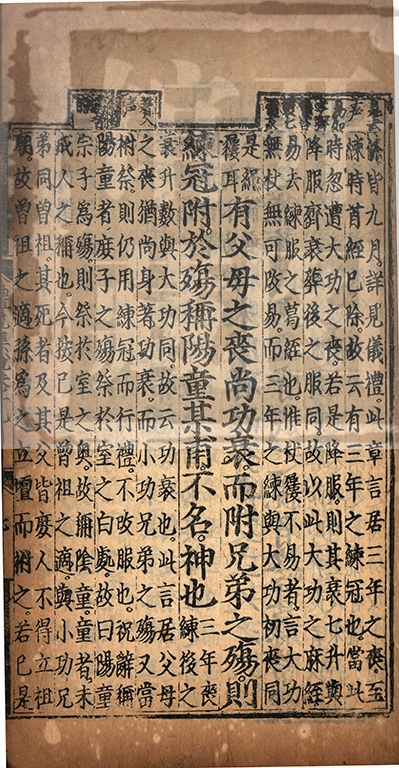 殤皆九月詳見儀禮此章言居三年之喪至
練時首絰已除故云有三年之練冠也當此
時忽遭大功之喪若是降服則其衰七升與
降服齊衰葬後之服同故以此大功之麻絰
易去練服之葛絰也惟杖屨不易者言大功
無杖無可改易而三年之練與大功初喪同
是繩
屨耳
有父母之喪尚功衰而附兄弟之殤則
練冠附於殤稱陽童某甫不名神也
三年喪
練後之
衰升數與大功同故云功衰也此言居父母
之喪猶尚身著功衰而小功兄弟之殤又當
祔祭則仍用練冠而行禮不改服也祝辭稱
陽童者庶子之殤祭於室之白處故曰陽童
宗子爲殤則祭於室之奧故稱陰童童者未
成人之稱也今按已是曾祖之適與小功兄
弟同曾祖其死者及其父皆庶人不得立祖
廟故曾祖之適孫爲之立壇而祔之若已是